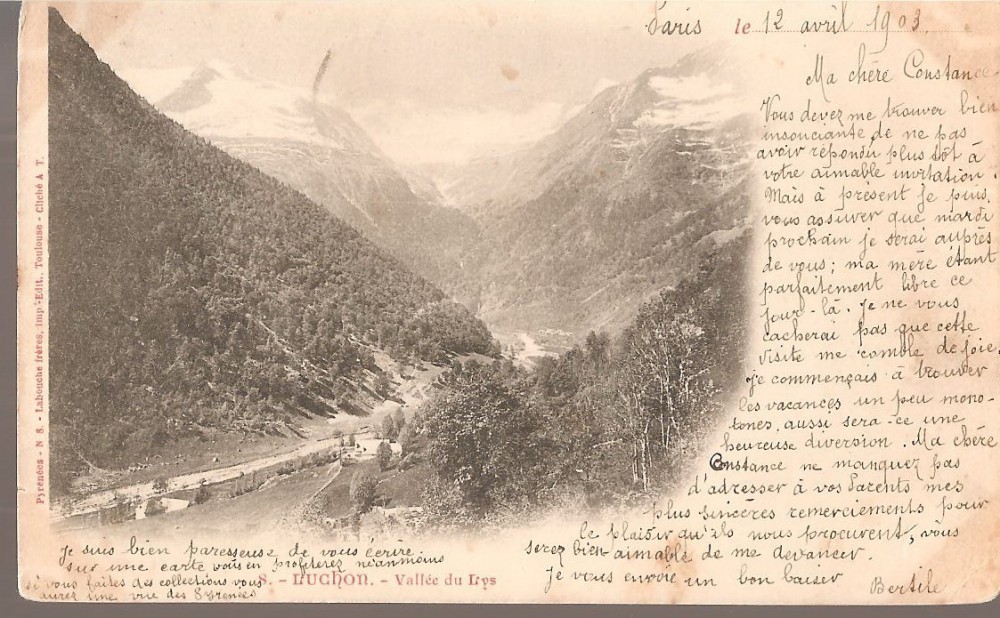 Paris le 12 avril 1903.
Ma chère Constance
Vous devez me trouver bien
insouciante de ne pas
avoir répondu plus tôt à
votre aimable invitation.
Mais à présent je puis
vous assurer que mardi
prochain je serai auprès
de vous; ma mère étant
parfaitement libre ce
jour-là. Je ne vous
cacherai pas que cette
visite me comble de joie.
Je commençais à trouver
les vacances un peu mono-
tones, aussi sera-ce une
heureuse diversion. Ma chère
Constance ne manquez pas
d'adresser à vos Parents mes
plus sincères remerciements pour
le plaisir qu'ils nous procurent, vous
serez bien aimable de me devancer.
Je vous envoie un bon baiser
Bertile
Je suis bien paresseuse de vous écrire
sur une carte vous en profiterez néanmoins
si vous faites des collections vous
aurez une vue des Pyrénées
8. - LUCHON. - Vallée du Lys
Pyrénées - N 8. - Labouche frères, imp.-Edit., Toulouse - Cliché A T.